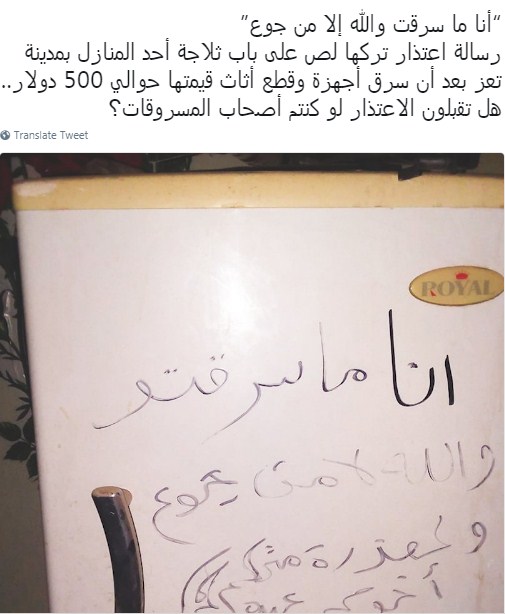 “أنا ما سرقت والله إلا من جوع”
رسالة اعتذار تركها لص على باب ثلاجة أحد المنازل بمدينة
تعز بعد أن سرق أجهزة وقطع أثاث قيمتها حوالي 500 دولار..
هل تقبلون الاعتذار لو كنتم أصحاب المسروقات؟
Translate Tweet
ROYAL
انا ما سرقتو
والله لا من جوع
ولمعذرة منكم